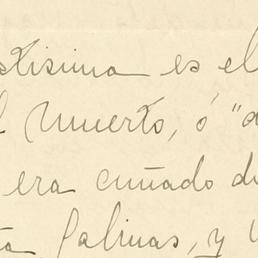 stisima es el
l muerto, ó "a
era cuñado d
ta Salinas, y